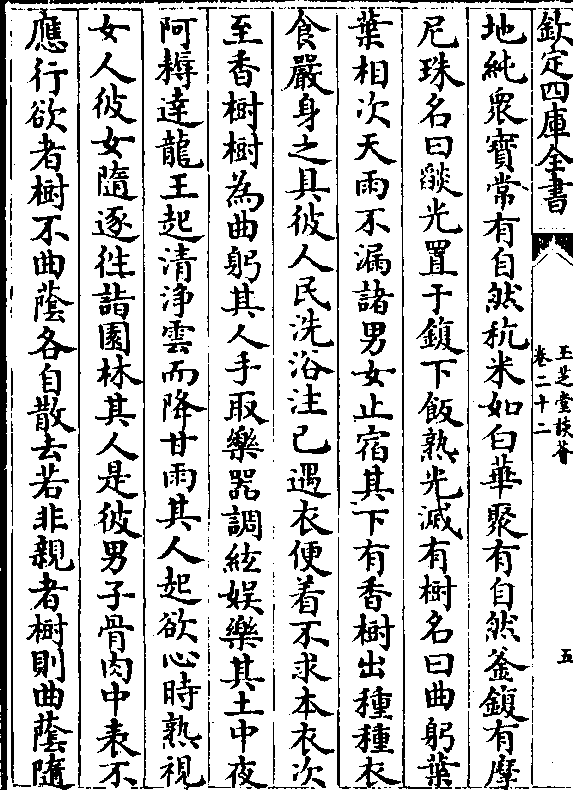 欽定四庫全書
玉芝堂談薈
卷二十二
五
地純衆寳常有自然秔米如白華聚有自然釜鍑有摩
尼珠名曰燄光置于鍑下飯熟光滅有樹名曰曲躬葉
葉相次天雨不漏諸男女止宿其下有香樹出種種衣
食嚴身之具彼人民洗浴注已遇衣便着不求本衣次
至香樹樹為曲躬其人手取樂器調絃娱樂其土中夜
阿耨達龍王起清浄雲而降甘雨其人起欲心時熟視
女人彼女隨逐徃詣園林其人是彼男子骨肉中表不
應行欲者樹不曲蔭各自散去若非親者樹則曲蔭隨